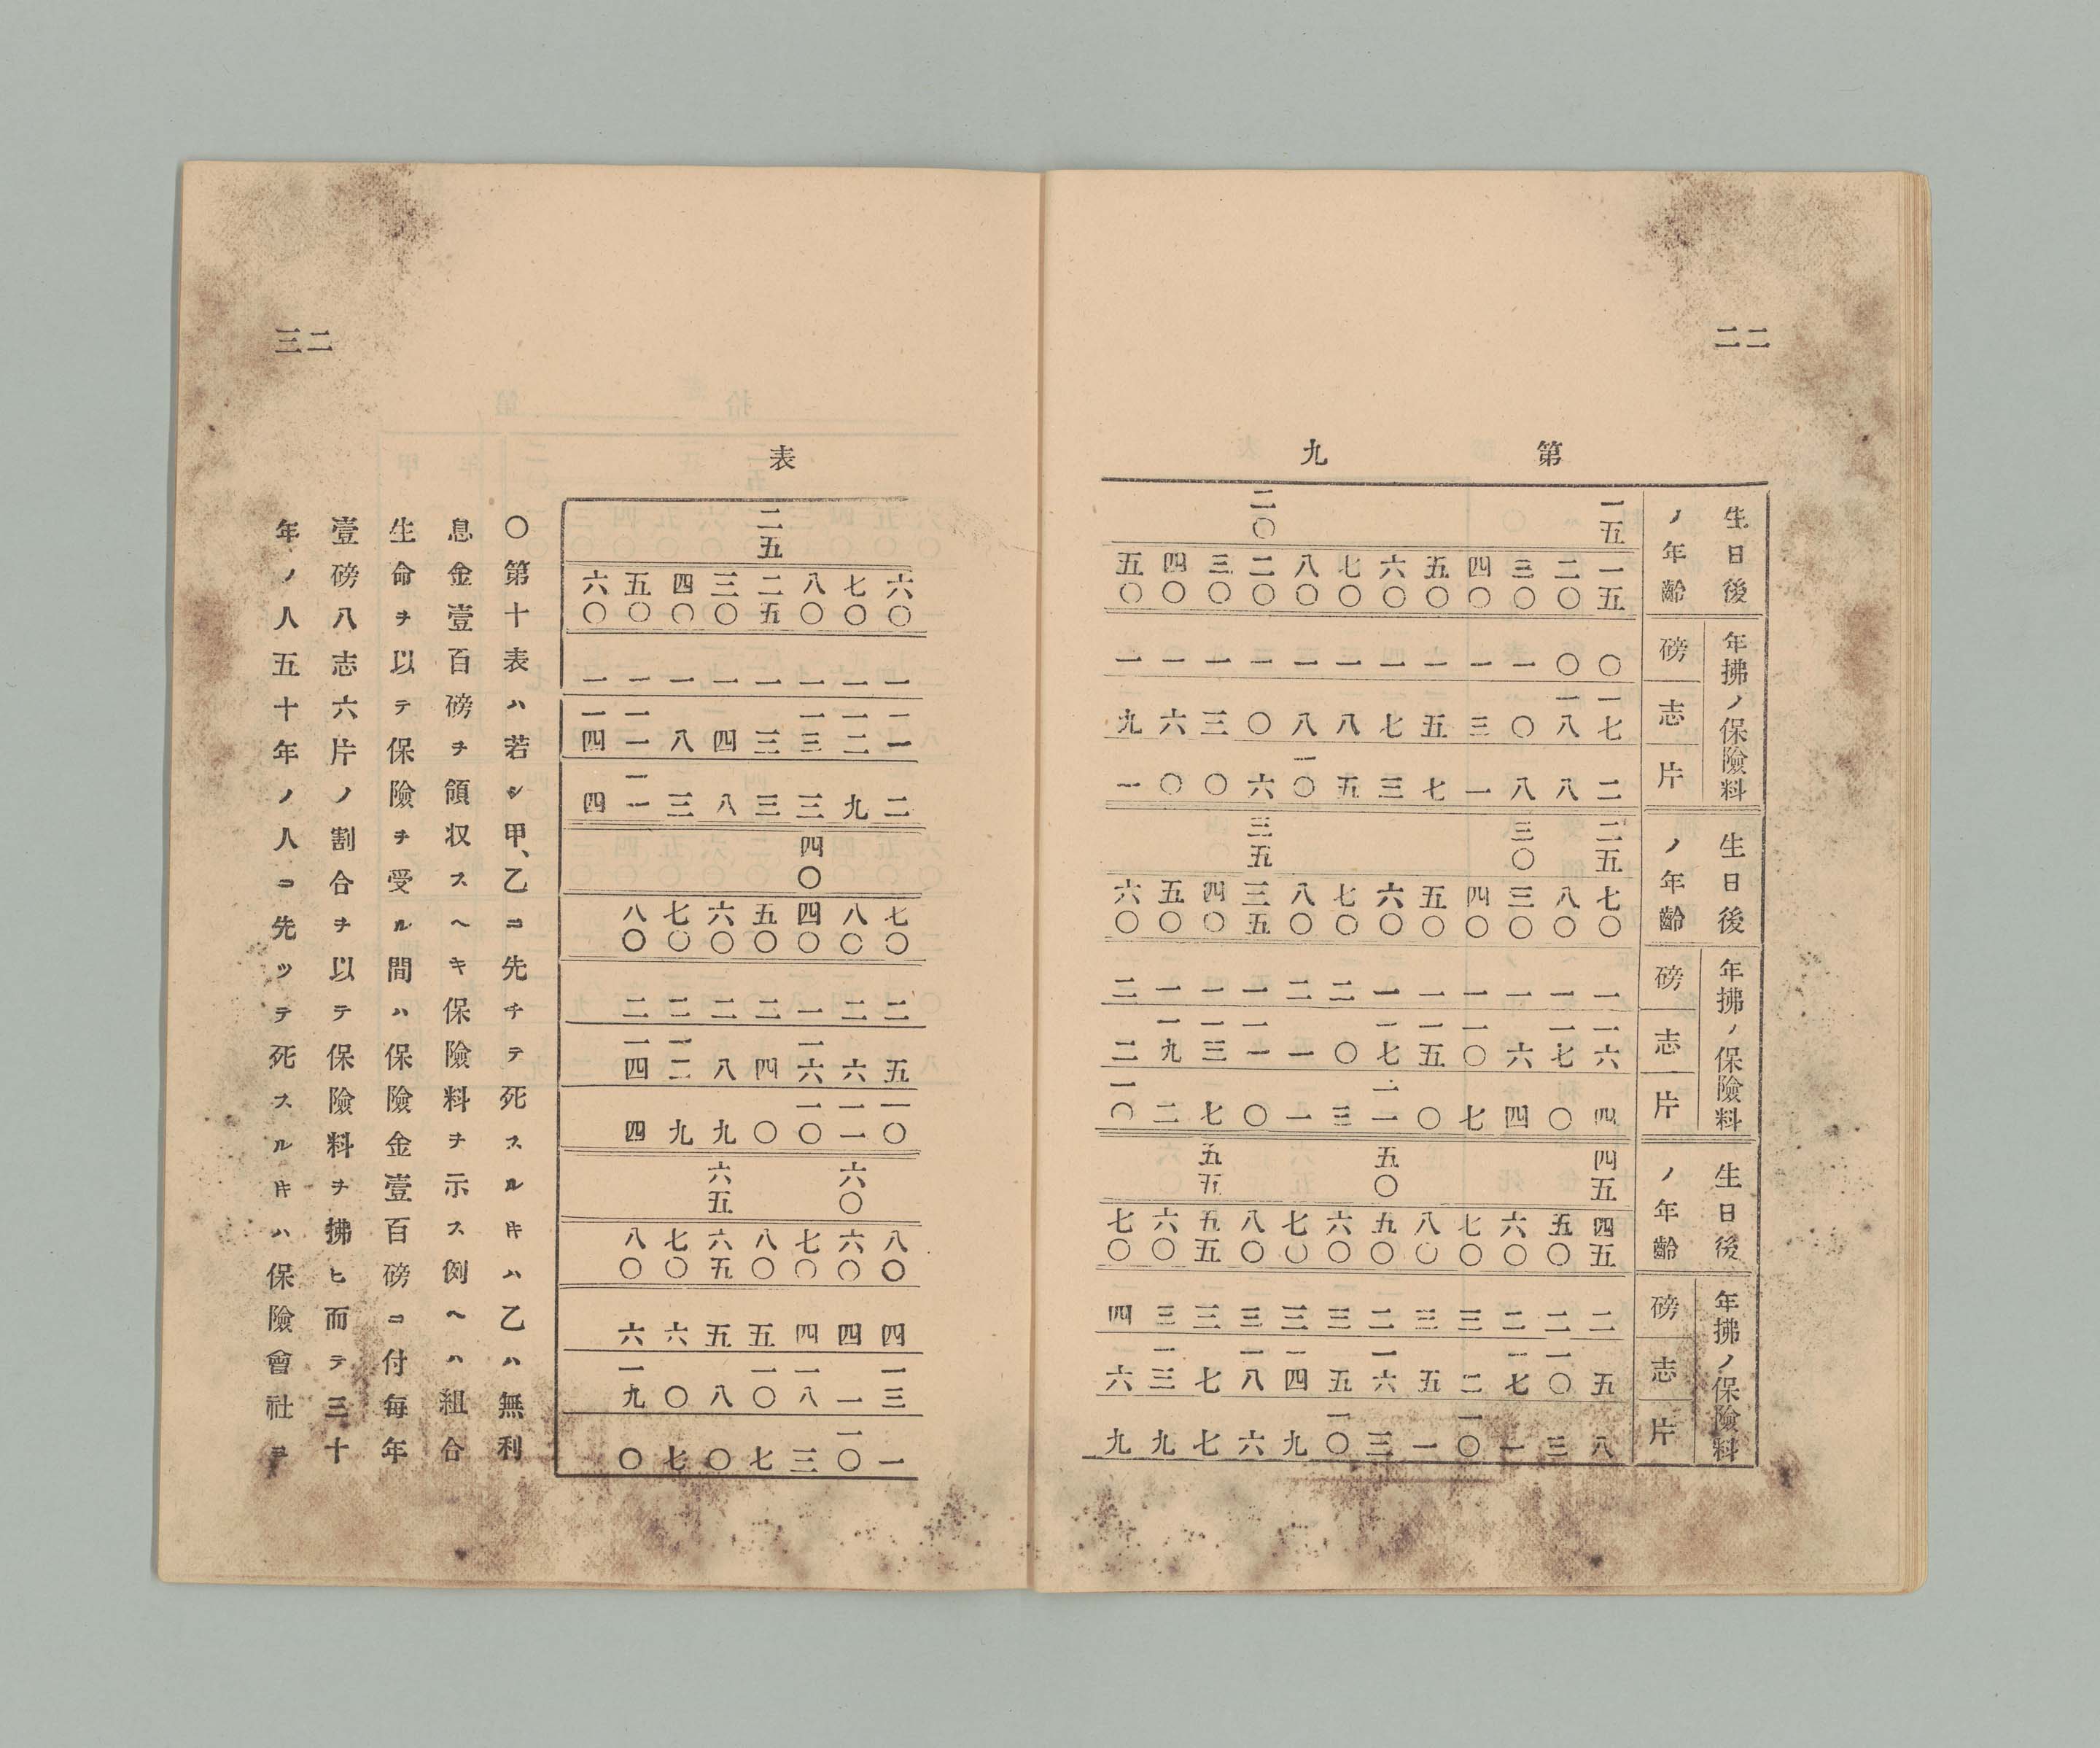 二二
第九
生日後 年拂ノ保險料 生日後 年拂ノ保險料 生日後 年拂ノ保險料
ノ年齡 磅 志 片 ノ年齡 磅 志 片 ノ年齡 磅 志 片
一五 一五 〇 一七 二 二五 七〇 一 一六 四 四五 四五 二 五 八
二〇 〇 一八 八 八〇 一 一七 〇 五〇 二 一〇 三
三〇 一 〇 八 三〇 三〇 一 六 四 六〇 二 一七 一
四〇 一 三 一 四〇 一 一〇 七 七〇 三 二 一〇
五〇 一 五 七 五〇 一 一五 〇 八〇 三 五 一
六〇 一 七 三 六〇 一 一七 一一 五〇 五〇 二 一六 三
七〇 一 八 五 七〇 二 〇 三 六〇 三 五 一〇
八〇 一 八 一〇 八〇 二 一 一 七〇 三 一四 九
二〇 二〇 一 〇 六 三五 三五 一 一一 〇 八〇 三 一八 六
三〇 一 三 〇 四〇 一 一三 七 五五 五五 三 七 七
四〇 一 六 〇 五〇 一 一九 二 六〇 三 一三 九
五〇 一 九 一 六〇 二 二 一〇 七〇 四 六 九
二三
表
六〇 一 一一 二 七〇 二 五 一〇 八〇 四 一三 一
七〇 一 一二 九 八〇 二 六 一一 六〇 六〇 四 一 一〇
八〇 一 一三 三 四〇 四〇 一 一六 一〇 七〇 四 一八 三
二五 二五 一 三 三 五〇 二 四 〇 八〇 五 一〇 七
三〇 一 四 八 六〇 二 八 九 六五 六五 五 八 〇
四〇 一 八 三 七〇 二 一二 九 七〇 六 〇 七
五〇 一 一一 一一 八〇 二 一四 四 八〇 六 一九 〇
六〇 一 一四 四
〇第十表ハ若シ甲、乙ニ先チテ死スルキハ乙ハ無利
息金壹百磅ヲ領収スヘキ保險料ヲ示ス例ヘハ組合
生命ヲ以テ保險ヲ受ル間ハ保險金壹百磅ニ付每年
壹磅八志六片ノ割合ヲ以テ保險料ヲ拂ヒ而テ三十
年ノ人五十年ノ人ニ先ッテ死スルキハ保險會社ヨ